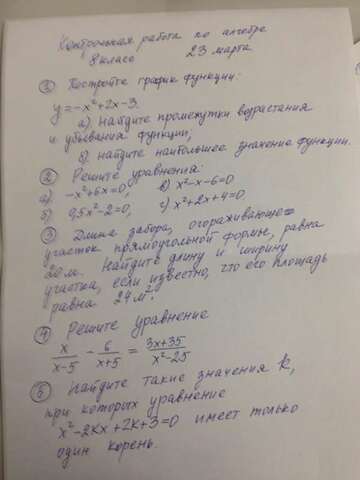 Контрольная работа по алгебре
8 класс 23 марта
① Постройте график функции:
y=-x²+2x-3.
а) Найдите промежутки возрастания
и убывания функции;
б) найдите наибольшее значение функции.
② Решите уравнения:
а) -x²+6x=0; в) x²-x-6=0
б) 0,5x²-2=0; г) x²+2x+4=0.
③ Длина забора, огораживающего
участок прямоугольной формы, равна
20 м. Найдите длину и ширину
участка, если известно, что его площадь
равна 24 м².
④ Решите уравнение
x/(x-5) - 6/(x+5) = (3x+35)/(x²-25)
⑤ Найдите такие значения k,
при которых уравнение
x²-2kx+2k+3=0 имеет только
один корень.